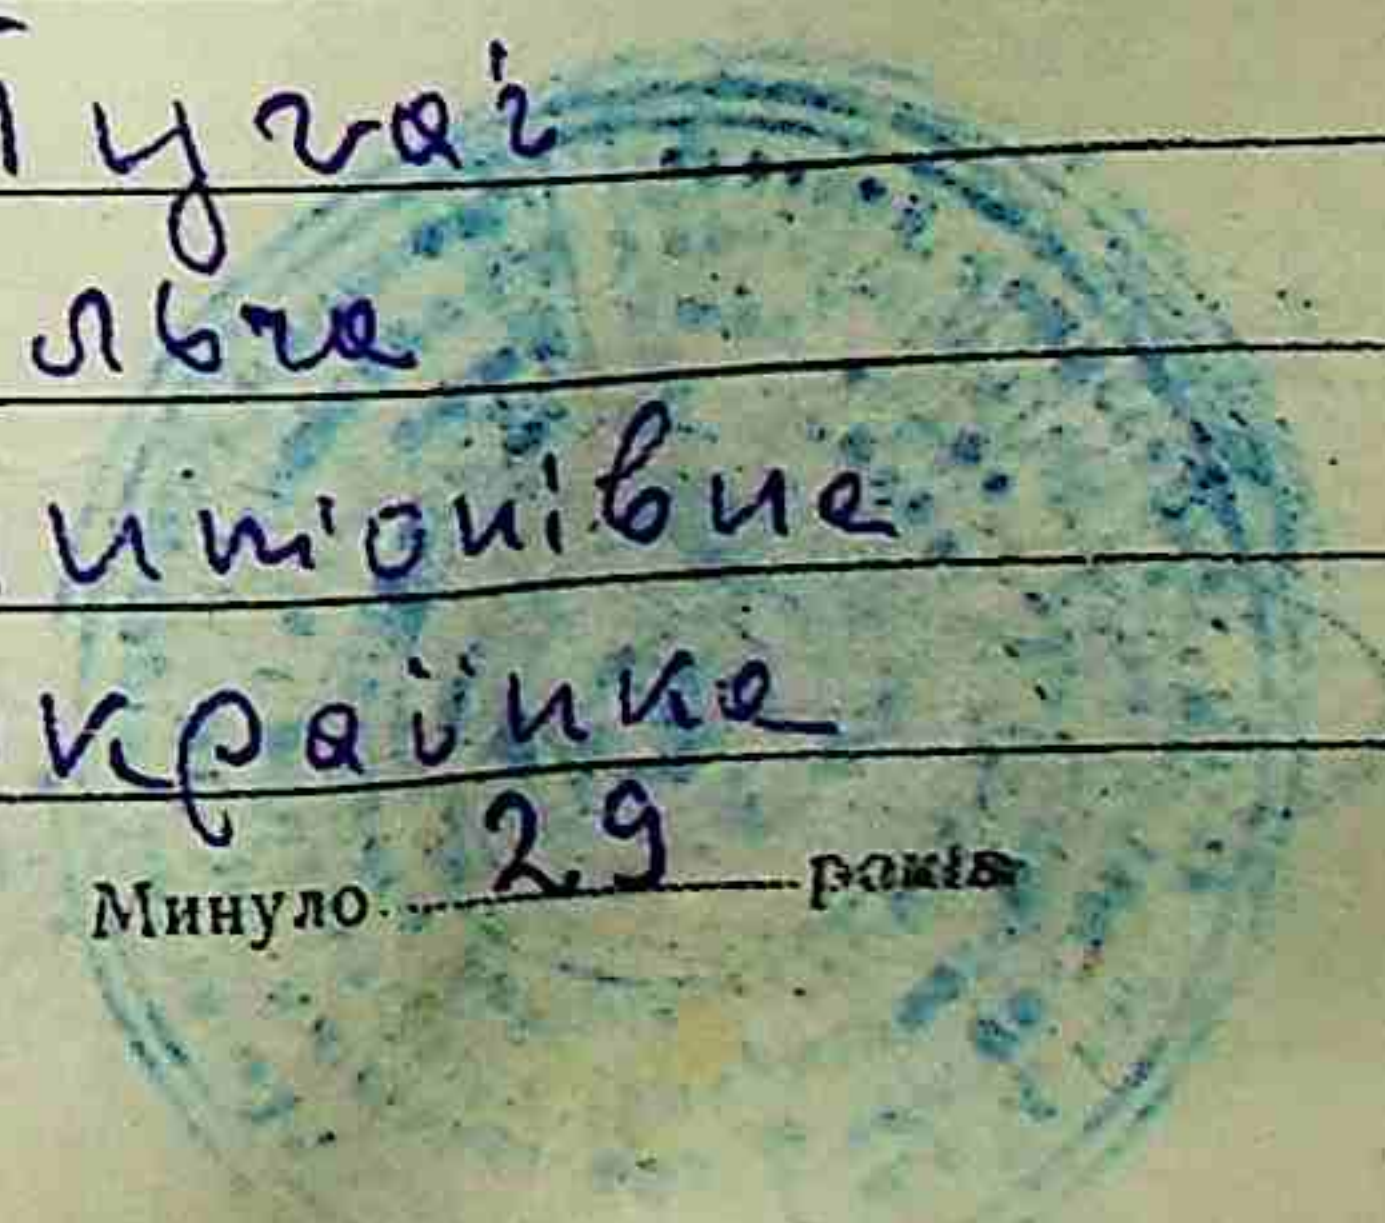 Тугаі
льга
нтонівна
країнка
Минуло 29 років